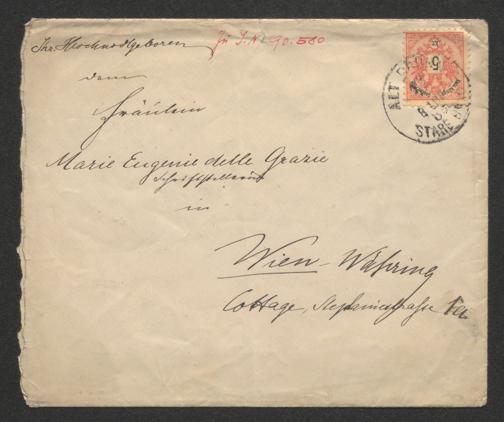 Ihr Hochwohlgeboren
Zu I.N. 90.560
dem
Fräulein
Marie Eugenie delle Grazie
Schriftstellerin
in
Wien-Währing
Cottage, Stephaniestraße 1a
5
ALT
STARÉ